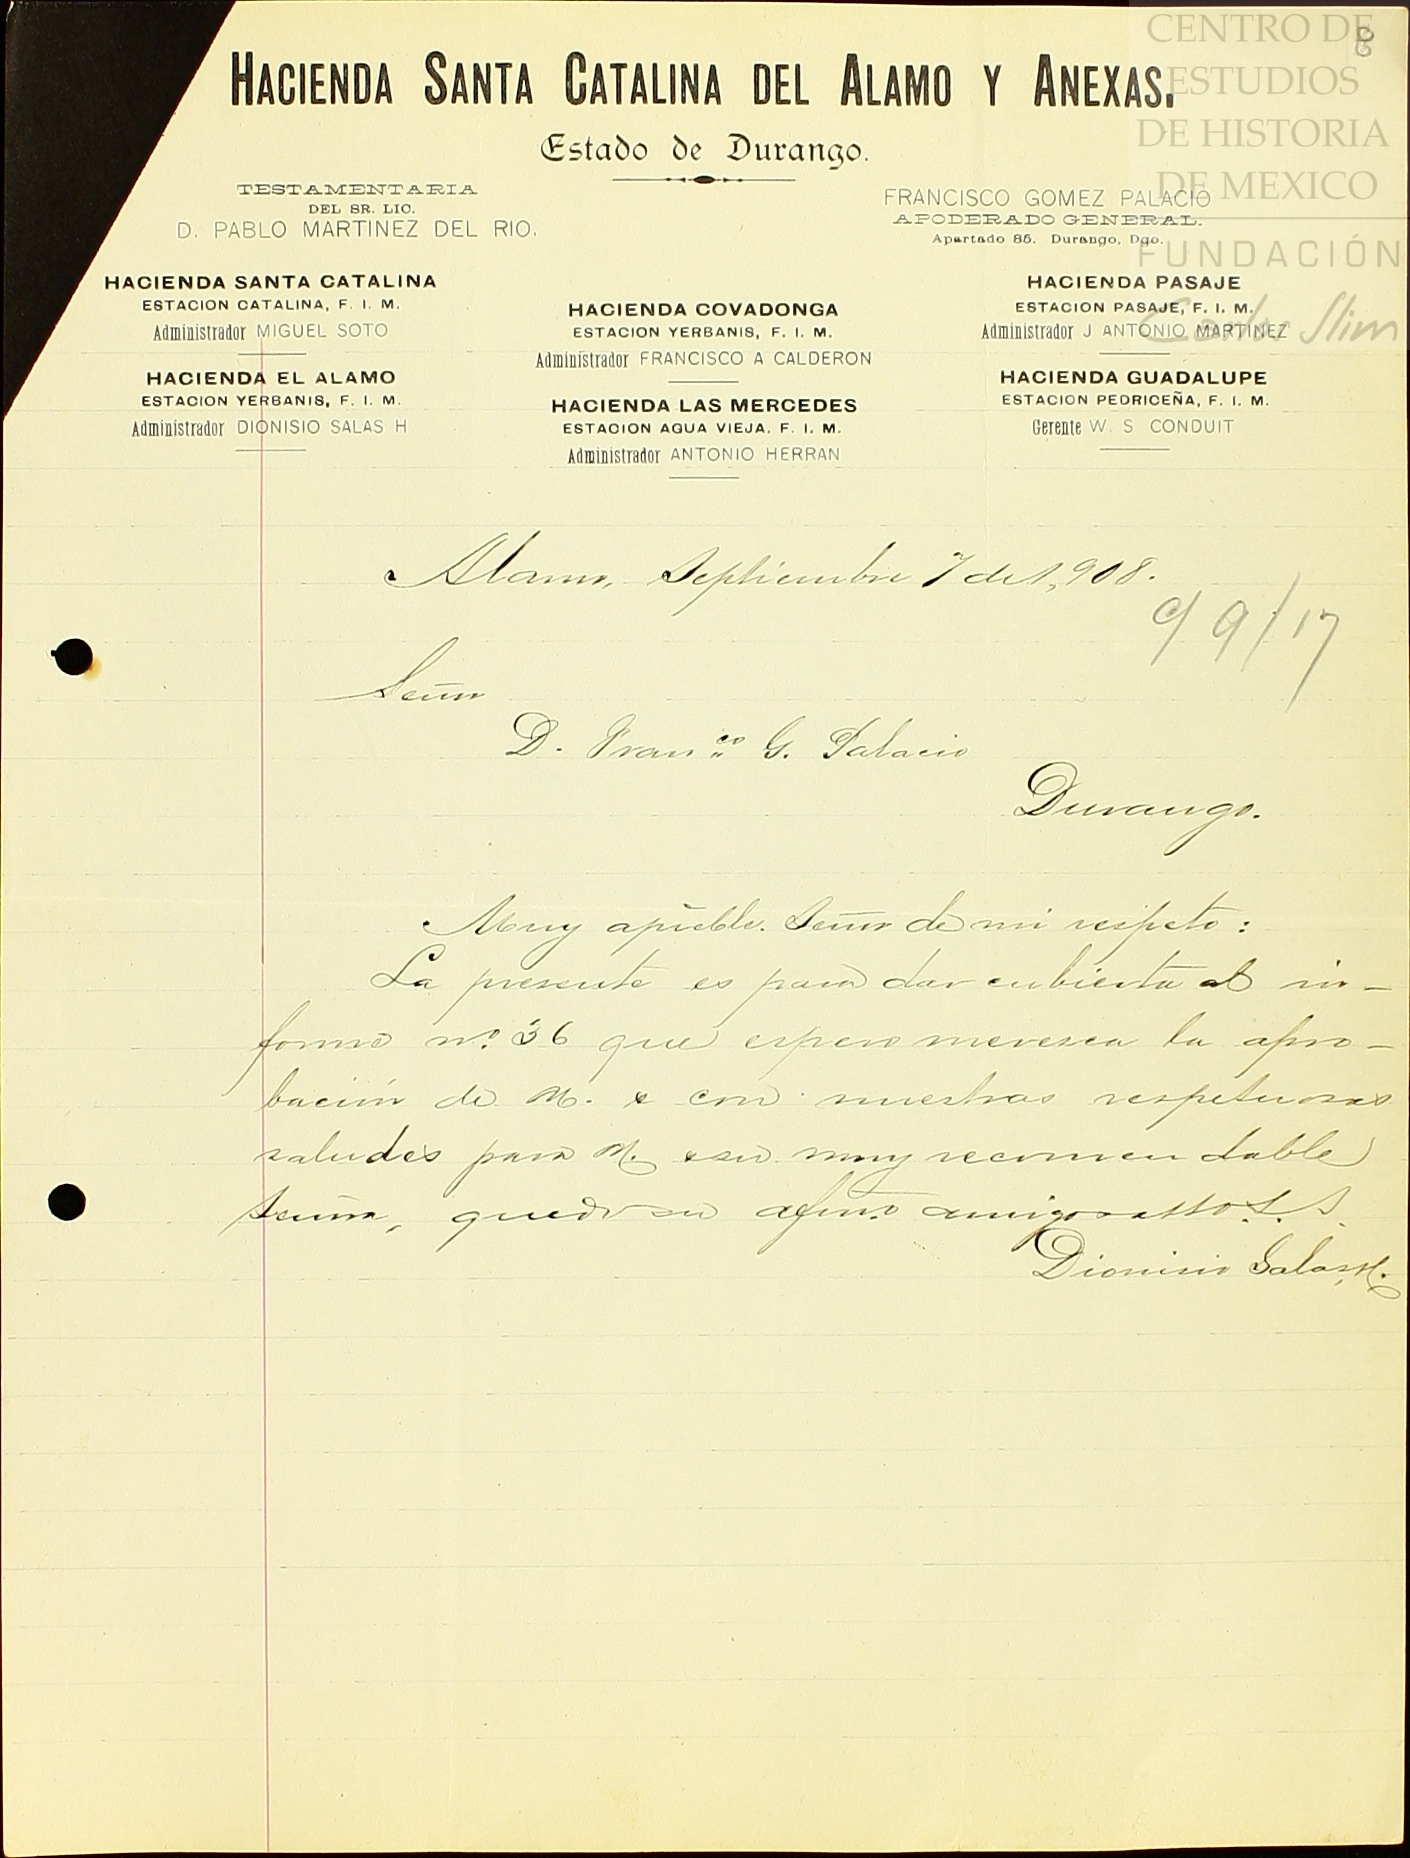 HACIENDA SANTA CATALINA DEL ALAMO Y ANEXAS.
Estado de Durango.
TESTAMENTARIA
DEL SR. LIC.
D. PABLO MARTINEZ DEL RIO.
FRANCISCO GOMEZ PALACIO
APODERADO GENERAL.
Apartado 85. Durango, Dgo.
HACIENDA SANTA CATALINA
ESTACION CATALINA, F. I. M.
Administrador MIGUEL SOTO
HACIENDA EL ALAMO
ESTACION YERBANIS, F. I. M.
Administrador DIONISIO SALAS H
HACIENDA COVADONGA
ESTACION YERBANIS, F. I. M.
Administrador FRANCISCO A CALDERON
HACIENDA LAS MERCEDES
ESTACION AGUA VIEJA, F. I. M.
Administrador ANTONIO HERRAN
HACIENDA PASAJE
ESTACION PASAJE, F. I. M.
Administrador J ANTONIO MARTINEZ
HACIENDA GUADALUPE
ESTACION PEDRICEÑA, F. I. M.
Gerente W. S CONDUIT
CENTRO DE
ESTUDIOS
DE HISTORIA
DE MEXICO
FUNDACIÓN
Carlos Slim
8
Alamo, Septiembre 7 de 1,908.
c/ 9/17
Señor
D. Franco G. Palacio
Durango.
Muy apreble. Señor de mi respeto:
La presente es para dar cubierta al in-
forme no. 36 que espero meresca la apro-
bación de U. & con nuestros respetuosos
saludes para U. & su muy recomendable
Señora, quedo su afmo amigo & atto S. S.
Dionisio Salas H.